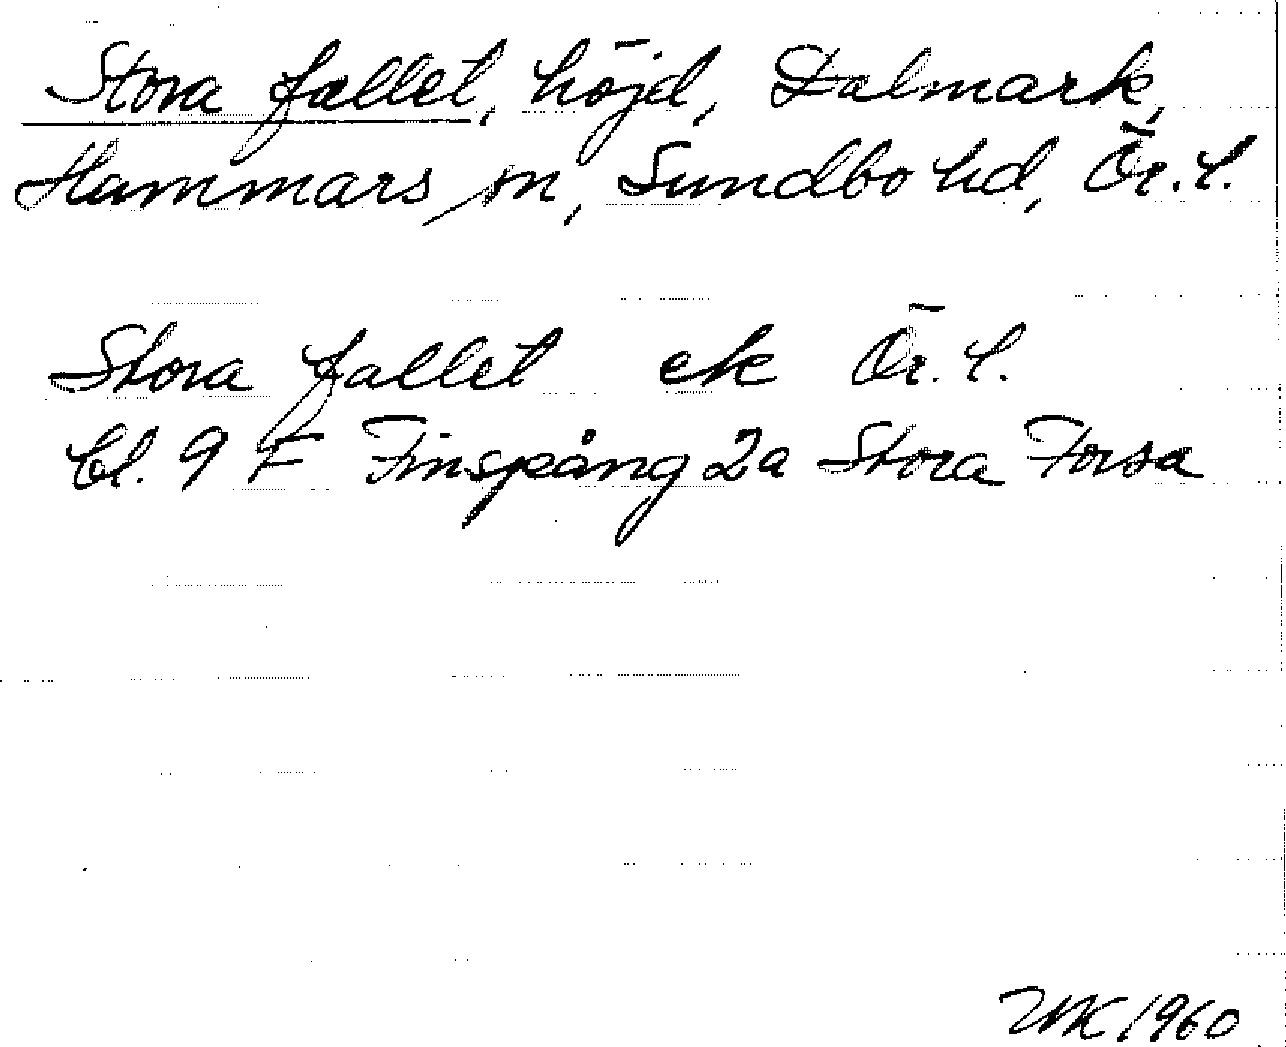 Stora fallet, höjd, Dalmark,
Hammars sn, Sundbo hd, Ör. l.
Stora fallet ek Ör. l.
bl. 9 F Finspång 2a Stora Forsa
1960